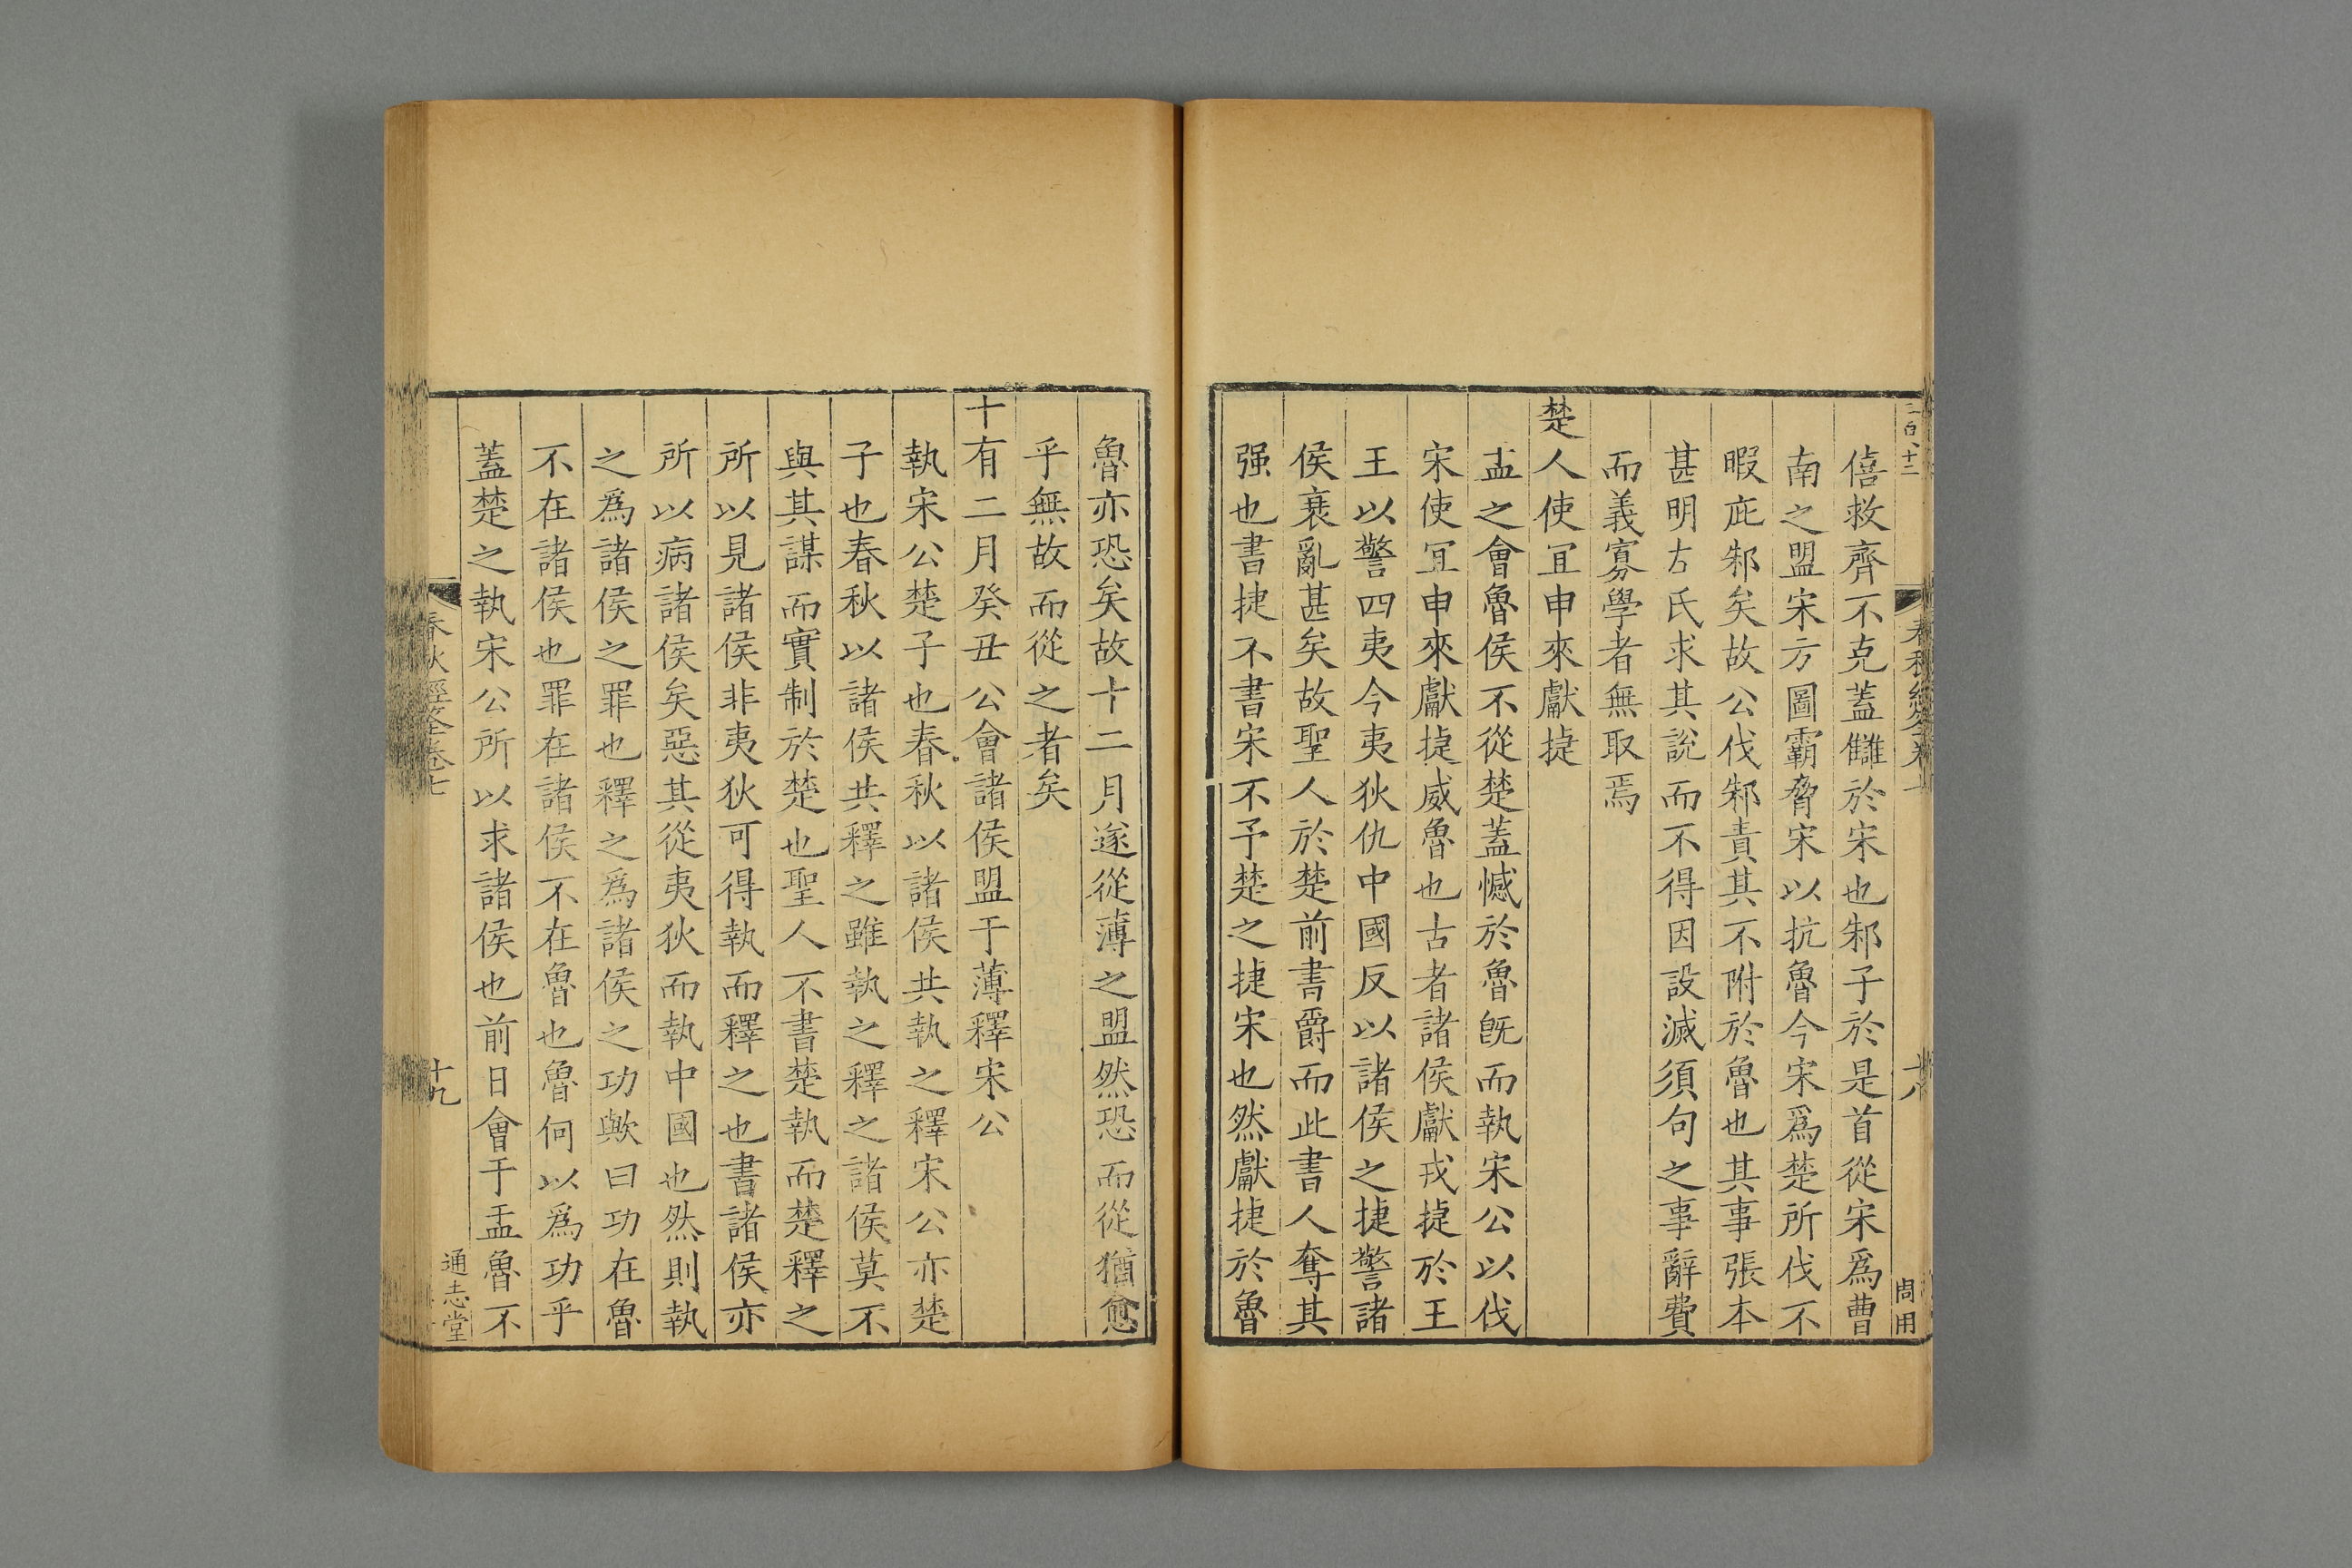 僖救齊不克蓋讎於宋也邾子於是首從宋爲曹
南之盟宋方圖霸脅宋以抗魯今宋爲楚所伐不
暇庇邾矣故公伐邾責其不附於魯也其事張本
甚明左氏求其說而不得因設滅須句之事辭費
而義寡學者無取焉
楚人使宜申來獻捷
盂之會魯侯不從楚蓋憾於魯旣而執宋公以伐
宋使宜申來獻捷威魯也古者諸侯獻戎捷於王
王以警四夷今夷狄仇中國反以諸侯之捷警諸
侯衰亂甚矣故聖人於楚前書爵而此書人奪其
强也書捷不書宋不予楚之捷宋也然獻捷於魯
魯亦恐矣故十二月遂從薄之盟然恐而從猶愈
乎無故而從之者矣
十有二月癸丑公會諸侯盟于薄釋宋公
執宋公楚子也春秋以諸侯共執之釋宋公亦楚
子也春秋以諸侯共釋之雖執之釋之諸侯莫不
與其謀而實制於楚也聖人不書楚執而楚釋之
所以見諸侯非夷狄可得執而釋之也書諸侯亦
所以病諸侯矣惡其從夷狄而執中國也然則執
之爲諸侯之罪也釋之爲諸侯之功歟曰功在魯
不在諸侯也罪在諸侯不在魯也魯何以爲功乎
蓋楚之執宋公所以求諸侯也前日會于盂魯不
春秋經筌卷七
十九
通志堂